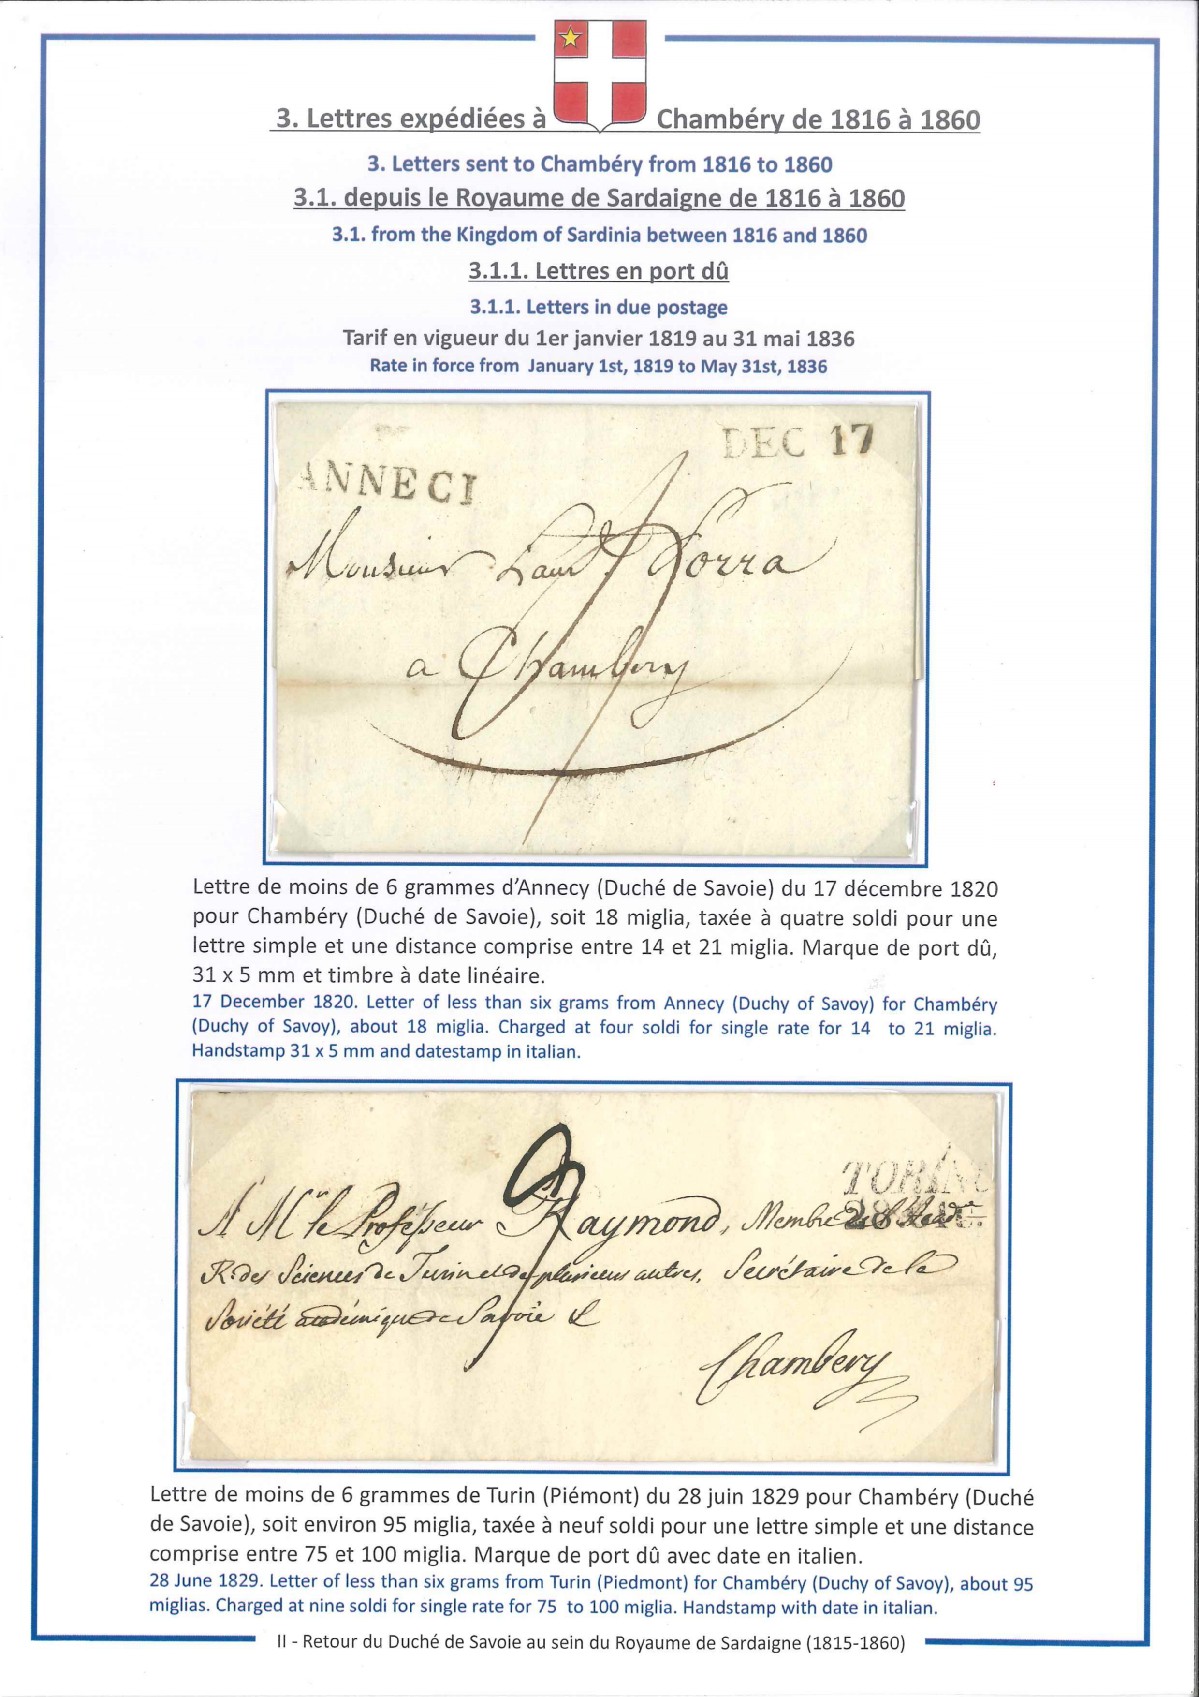 3. Lettres expédiées à Chambéry de 1816 à 1860
3. Letters sent to Chambéry from 1816 to 1860
3.1. depuis le Royaume de Sardaigne de 1816 à 1860
3.1. from the Kingdom of Sardinia between 1816 and 1860
3.1.1. Lettres en port dû
3.1.1. Letters in due postage
Tarif en vigueur du 1er janvier 1819 au 31 mai 1836
Rate in force from January 1st, 1819 to May 31st, 1836
DEC 17
ANNECI
Monsieur Laur Porra
a Chambery
Lettre de moins de 6 grammes d'Annecy (Duché de Savoie) du 17 décembre 1820
pour Chambéry (Duché de Savoie), soit 18 miglia, taxée à quatre soldi pour une
lettre simple et une distance comprise entre 14 et 21 miglia. Marque de port dû,
31 x 5 mm et timbre à date linéaire.
17 December 1820. Letter of less than six grams from Annecy (Duchy of Savoy) for Chambéry
(Duchy of Savoy), about 18 miglia. Charged at four soldi for single rate for 14 to 21 miglia.
Handstamp 31 x 5 mm and datestamp in italian.
TORINO
28
A Mr le Professeur Raymond, Membre de l'Acad
R. des Sciences de Turin et de plusieurs autres, Secrétaire de la
Société académique de Savoie &
Chambery
Lettre de moins de 6 grammes de Turin (Piémont) du 28 juin 1829 pour Chambéry (Duché
de Savoie), soit environ 95 miglia, taxée à neuf soldi pour une lettre simple et une distance
comprise entre 75 et 100 miglia. Marque de port dû avec date en italien.
28 June 1829. Letter of less than six grams from Turin (Piedmont) for Chambéry (Duchy of Savoy), about 95
miglias. Charged at nine soldi for single rate for 75 to 100 miglia. Handstamp with date in italian.
II - Retour du Duché de Savoie au sein du Royaume de Sardaigne (1815-1860)